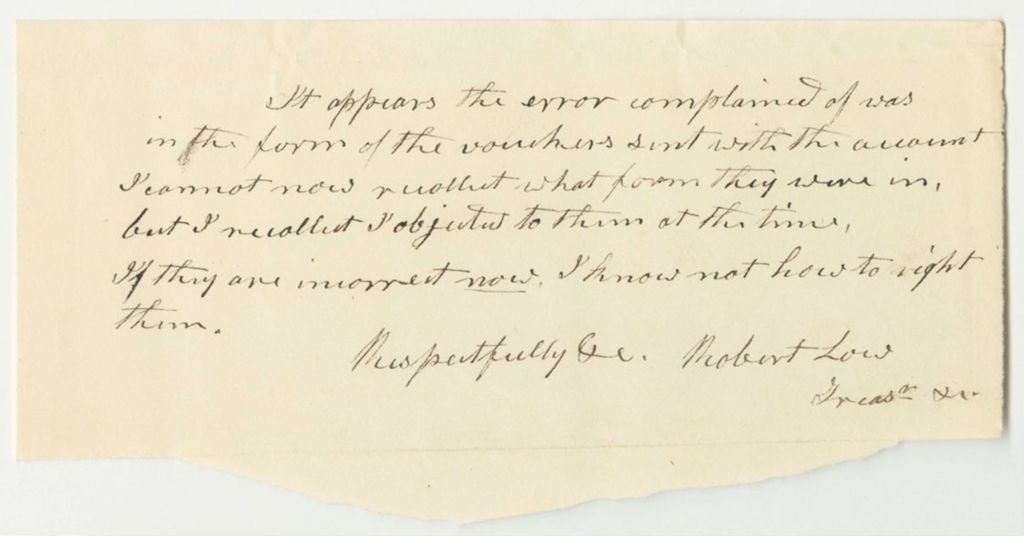 It appears the error complained of was
in the form of the vouchers sent with the account
I cannot now recollect what form they were in,
but I recollect I objected to them at the time,
If they are incorrect now, I know not how to right
them.
Respectfully &c. Robert Low
Treasr &c.